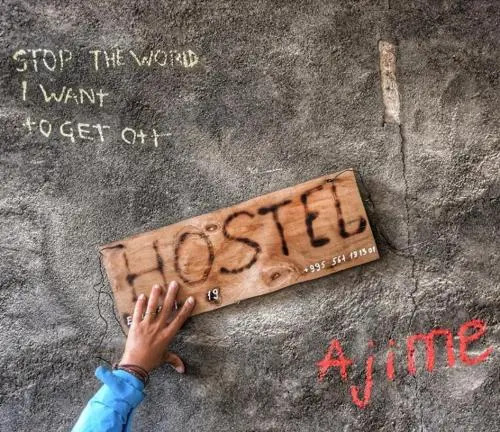 STOP THE WORLD
I WANT
to GET Off
HOSTEL
19
+995 561 191301
Ajime